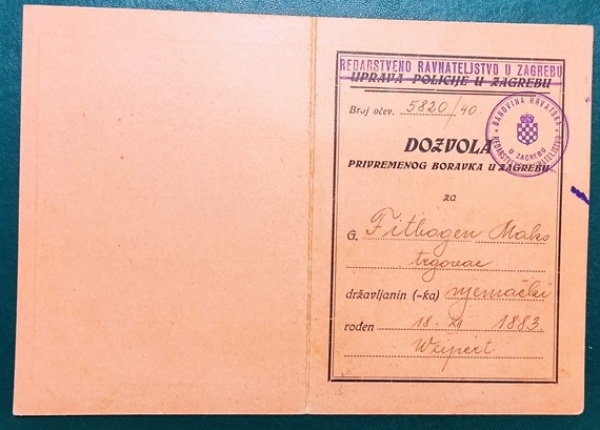 REDARSTVENO RAVNATELJSTVO U ZAGREBU
UPRAVA POLICIJE U ZAGREBU
Broj očev. 5820/40.
BANOVINA HRVATSKA
REDARSTVENO RAVNATELJSTVO
U ZAGREBU
DOZVOLA
PRIVREMENOG BORAVKA U ZAGREBU
za
G. Fitbogen Maks
trgovac
državljanin (-ka) njemački
rođen 18. XI 1883.
Weipert